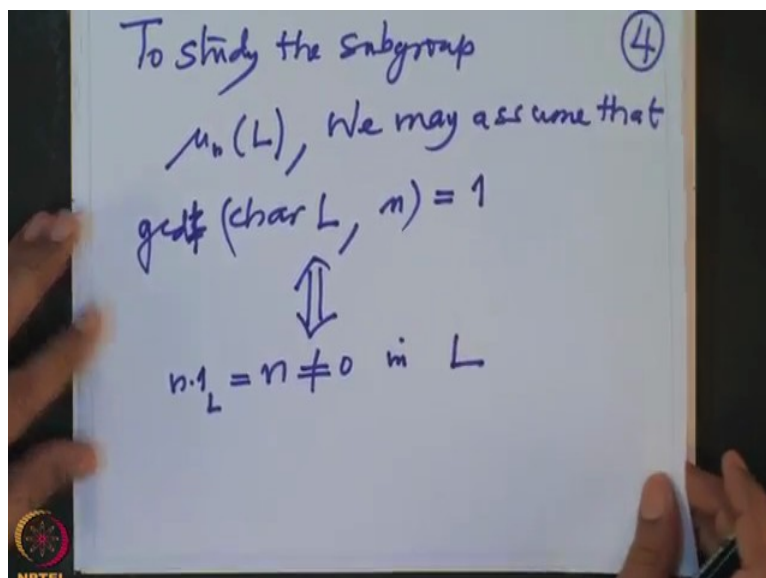 To study the subgroup
④
μₙ(L), We may assume that
gcd (char L, n) = 1
⇕
n·1_L = n ≠ 0 in L
NPTEL